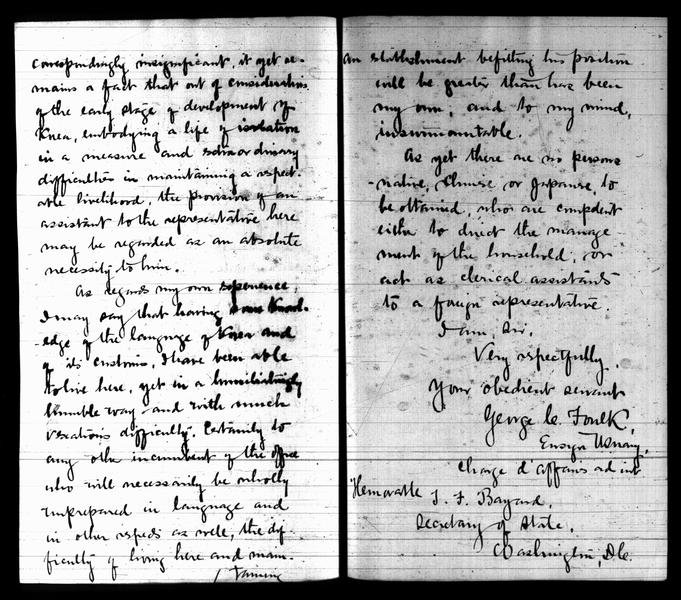 correspondingly insignificant, it yet re-
mains a fact that out of consideration
of the early stage of development of
Korea, embodying a life of isolation
in a measure and extraordinary
difficulties in maintaining a respect-
able livelihood, the provision of an
assistant to the representative here
may be regarded as an absolute
necessity to him.
As regards my own experience,
I may say that having some knowl-
edge of the language of Korea and
of its customs, I have been able
to live here, yet in a humiliatingly
humble way and with much
vexatious difficulty. Certainly to
any other incumbent of the office
who will necessarily be wholly
unprepared in language and
in other respects as well, the dif-
ficulty of living here and main-
/ taining
an establishment befitting his position
will be greater than have been
my own, and to my mind,
insurmountable.
As yet there are no persons
native, Chinese or Japanese, to
be obtained, who are competent
either to direct the manage-
ment of the household, or
act as clerical assistants
to a foreign representative.
I am, Sir,
Very respectfully,
Your obedient servant
George C. Foulk,
Ensign U.S. Navy,
Charge d'affaires ad int
Honorable T. F. Bayard,
Secretary of State,
Washington, D.C.